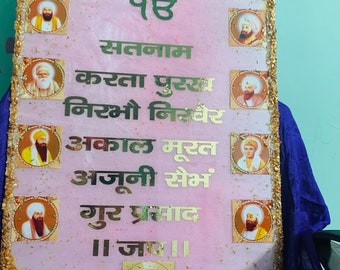 ੴ
सतनाम
करता पुरख
निरभौ निरवैर
अकाल मूरत
अजूनी सैभं
गुर प्रसाद
।। जप ।।